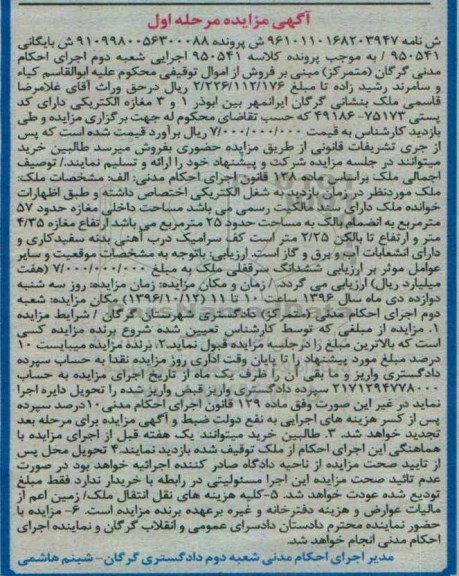 آگهی مزایده مرحله اول
ش نامه ۹۶۱۰۱۱۰۱۶۸۲۰۳۹۴۷ ش پرونده ۹۱۰۹۹۸۰۰۵۶۳۰۰۰۸۸ ش بایگانی
۹۵۰۵۴۱ / به موجب پرونده کلاسه ۹۵۰۵۴۱ اجرایی شعبه دوم اجرای احکام
مدنی گرگان (متمرکز) مبنی بر فروش از اموال توقیفی محکوم علیه ابوالقاسم کیاء
و سامرند رشید زاده تا مبلغ ۲/۲۲۶/۱۱۲/۱۷۶ ریال درحق وراث آقای غلامرضا
قاسمی ملک بنشانی گرگان ایرانمهر بین ابوذر ۱ و ۳ مغازه الکتریکی دارای کد
پستی ۷۵۱۷۳-۴۹۱۸۶ که حسب تقاضای محکوم له جهت برگزاری مزایده و طی
بازدید کارشناس به قیمت ۷/۰۰۰/۰۰۰/۰۰۰ ریال برآورد قیمت شده است که پس
از جری تشریفات قانونی از طریق مزایده حضوری بفروش میرسد طالبین خرید
میتوانند در جلسه مزایده شرکت و پیشنهاد خود را ارائه و تسلیم نمایند./ توصیف
اجمالی ملک براساس ماده ۱۳۸ قانون اجرای احکام مدنی: الف: مشخصات ملک:
ملک موردنظر در زمان بازدید به شغل الکتریکی اختصاص داشته و طبق اظهارات
خوانده ملک دارای سند مالکیت رسمی می باشد مساحت داخلی مغازه حدود ۵۷
مترمربع به انضمام بالکن به مساحت حدود ۲۵ مترمربع می باشد ارتفاع مغازه ۴/۳۵
متر و ارتفاع تا بالکن ۲/۲۵ متر است کف سرامیک درب آهنی بدنه سفیدکاری و
دارای انشعابات آب و برق و گاز است. ارزیابی: باتوجه به مشخصات موقعیت و سایر
عوامل موثر بر ارزیابی ششدانگ سرقفلی ملک به مبلغ ۷/۰۰۰/۰۰۰/۰۰۰ (هفت
میلیارد ریال) ارزیابی می گردد. / زمان و مکان مزایده: زمان مزایده: روز سه شنبه
دوازده دی ماه سال ۱۳۹۶ ساعت ۱۰ تا ۱۱ (۱۳۹۶/۱۰/۱۲) مکان مزایده: شعبه
دوم اجرای احکام مدنی (متمرکز) دادگستری شهرستان گرگان / شرایط مزایده
۱. مزایده از مبلغی که توسط کارشناس تعیین شده شروع برنده مزایده کسی
است که بالاترین مبلغ را درجلسه مزایده قبول نماید۲. برنده مزایده میبایست ۱۰
درصد مبلغ مورد پیشنهاد را تا پایان وقت اداری روز مزایده نقدا به حساب سپرده
دادگستری واریز و ما بقی آن را ظرف یک ماه از تاریخ اجرای مزایده به حساب
۲۱۷۱۲۹۴۷۷۸۰۰۰ سپرده دادگستری واریز قبض واریز شده را تحویل دایره اجرا
نماید در غیر این صورت وفق ماده ۱۲۹ قانون اجرای احکام مدنی۱۰درصد سپرده
پس از کسر هزینه های اجرایی به نفع دولت ضبط و آگهی مزایده برای مرحله بعد
تجدید خواهد شد. ۳. طالبین خرید میتوانند یک هفته قبل از اجرای مزایده با
هماهنگی این اجرای احکام از ملک توقیف شده بازدید نمایند.۴ تحویل محل پس
از تایید صحت مزایده از ناحیه دادگاه صادر کننده اجرائیه خواهد بود در صورت
عدم تائید صحت مزایده این اجرا مسئولیتی در رابطه با خریدار ندارد فقط مبلغ
تودیع شده عودت خواهد شد. ۵-کلیه هزینه های نقل انتقال ملک/ زمین اعم از
مالیات عوارض و هزینه دفترخانه و غیره برعهده برنده مزایده است. ۶- مزایده با
حضور نماینده محترم دادستان دادسرای عمومی و انقلاب گرگان و نماینده اجرای
احکام مدنی انجام خواهد شد.
مدیر اجرای احکام مدنی شعبه دوم دادگستری گرگان- شبنم هاشمی